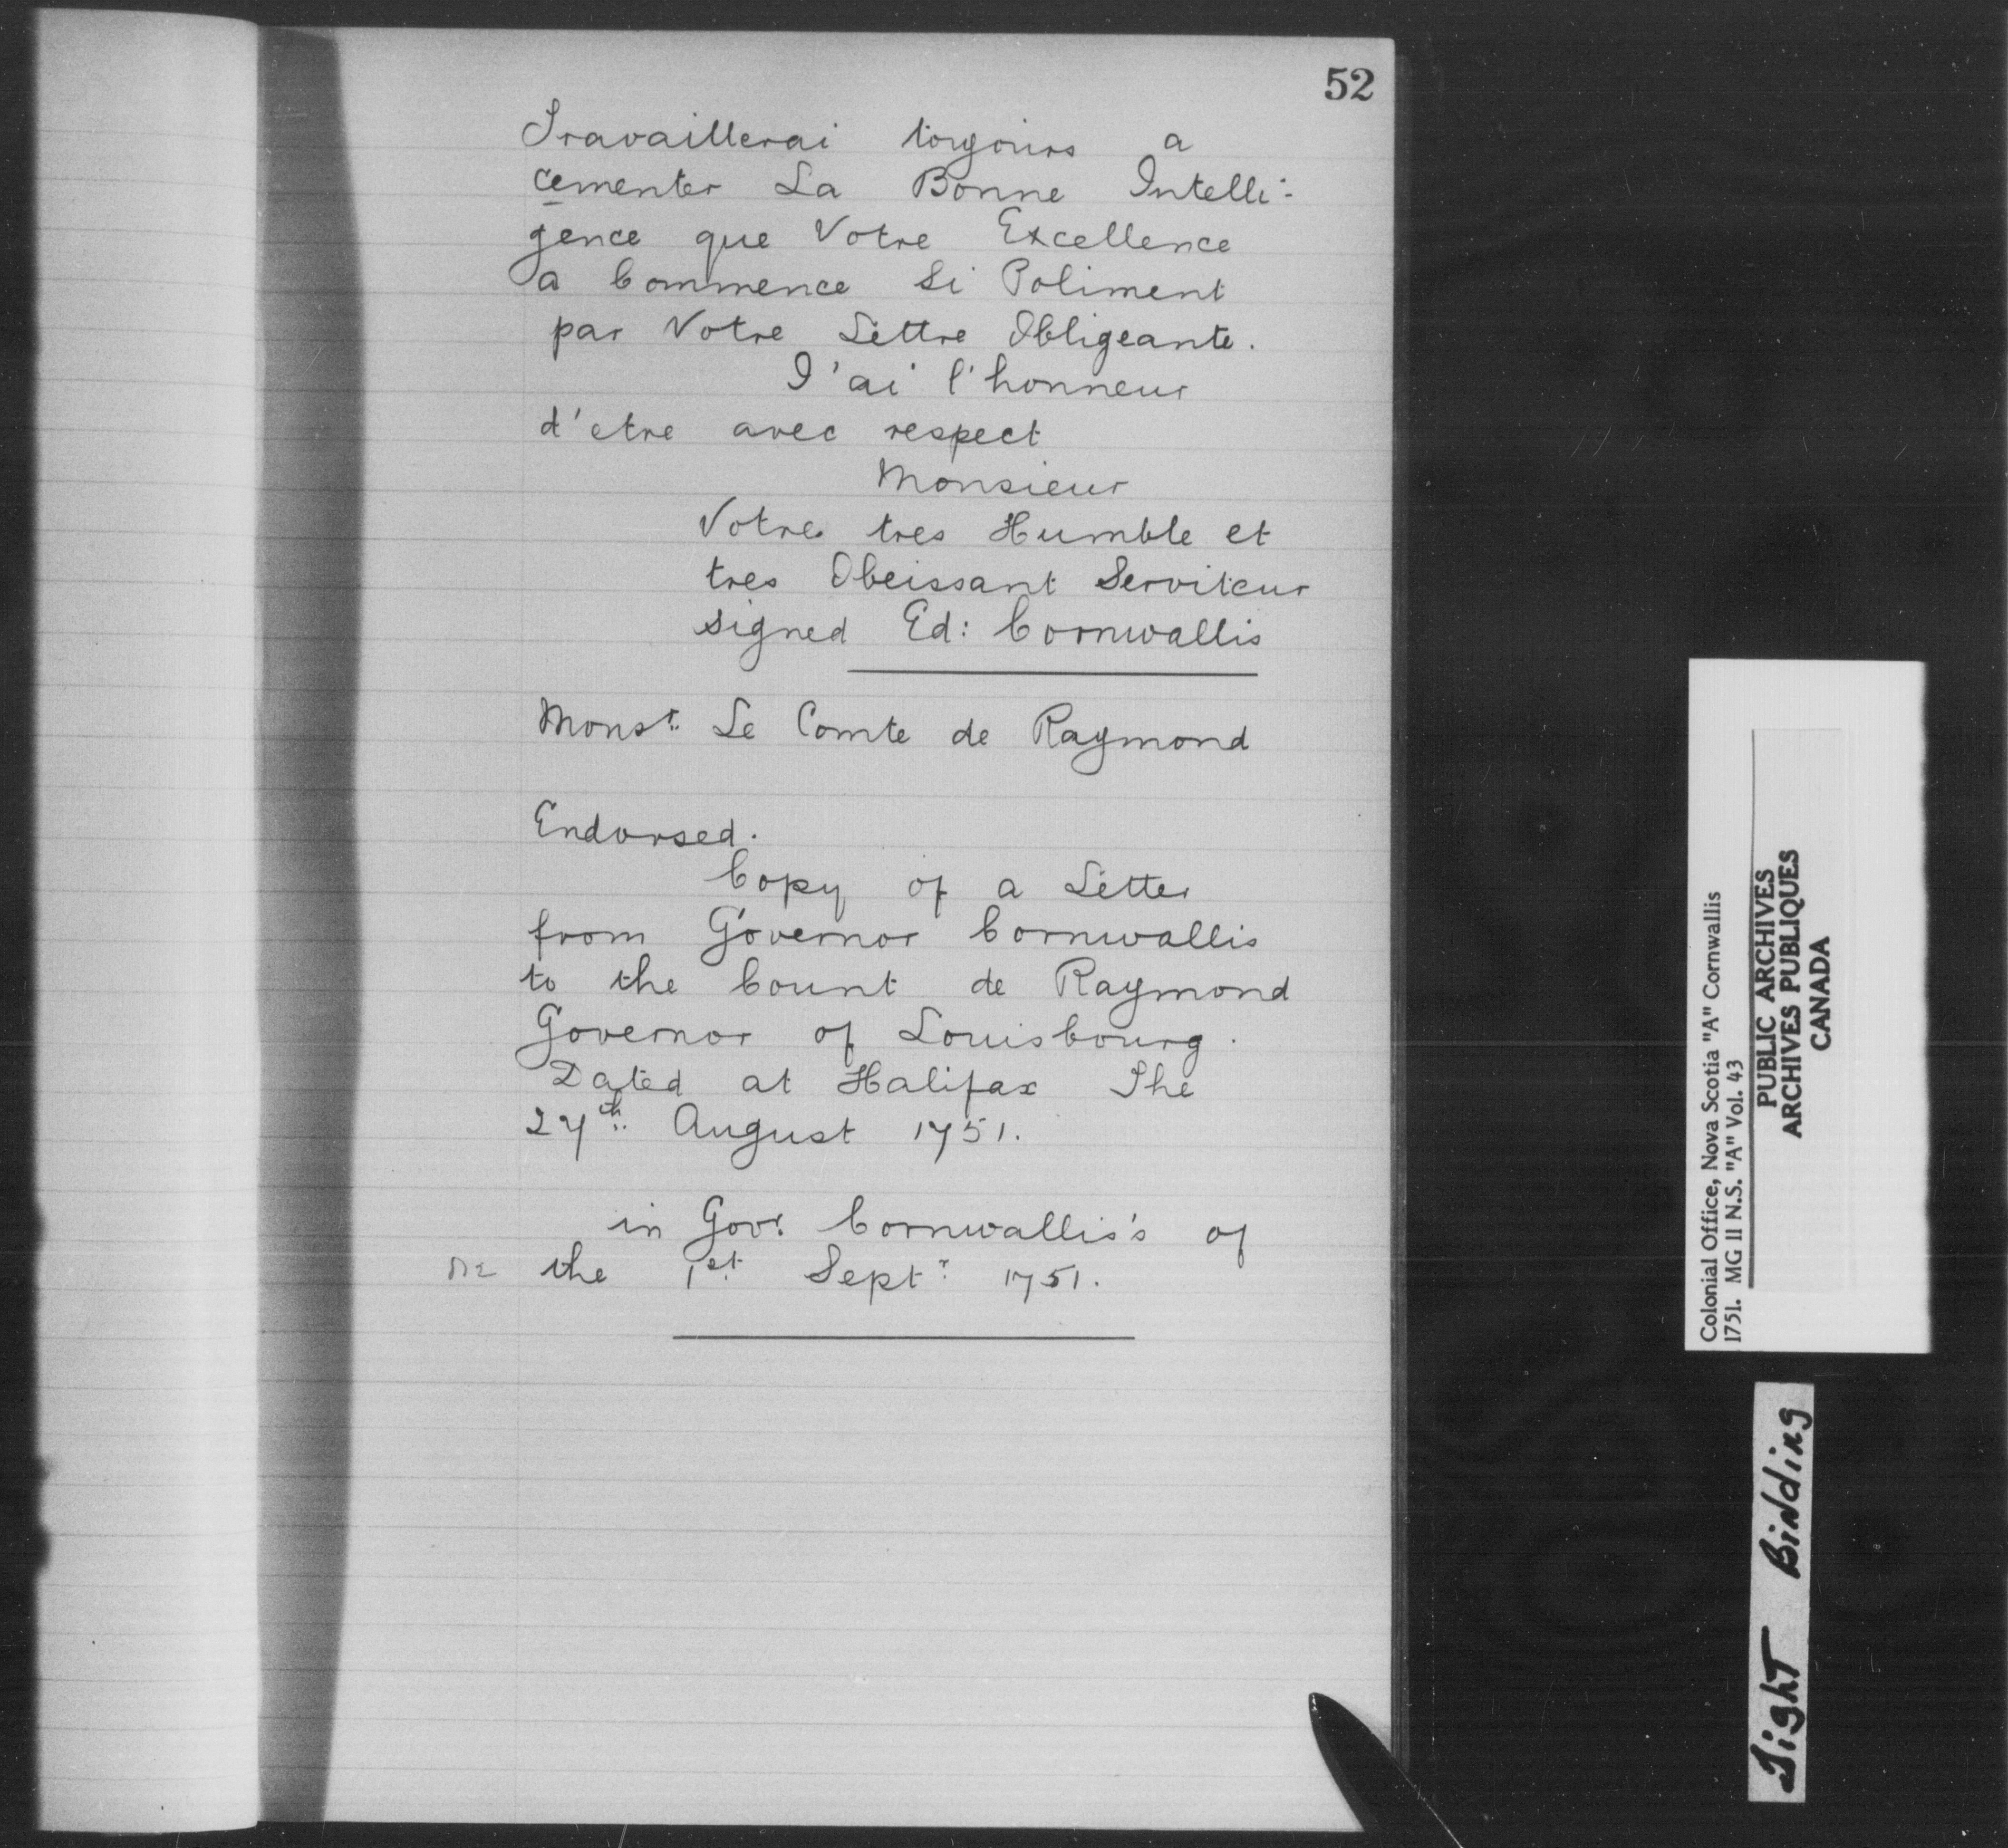 52
Travaillerai toujours a
cementer La Bonne Intelli-
gence que Votre Excellence
a Commence Si Poliment
par Votre Lettre Obligeante.
J'ai l'honneur
d'etre avec respect
Monsieur
Votre tres Humble et
tres Obeissant Serviteur
signed Ed: Cornwallis
Monsr. Le Comte de Raymond
Endorsed.
Copy of a Letter
from Governor Cornwallis
to the Count de Raymond
Governor of Louisbourg.
Dated at Halifax The
27th August 1751.
in Govr. Cornwallis's of
the 1st Septr. 1751.
Colonial Office, Nova Scotia "A" Cornwallis
1751. MG 11 N.S. "A" Vol. 43
PUBLIC ARCHIVES
ARCHIVES PUBLIQUES
CANADA
Tight Binding